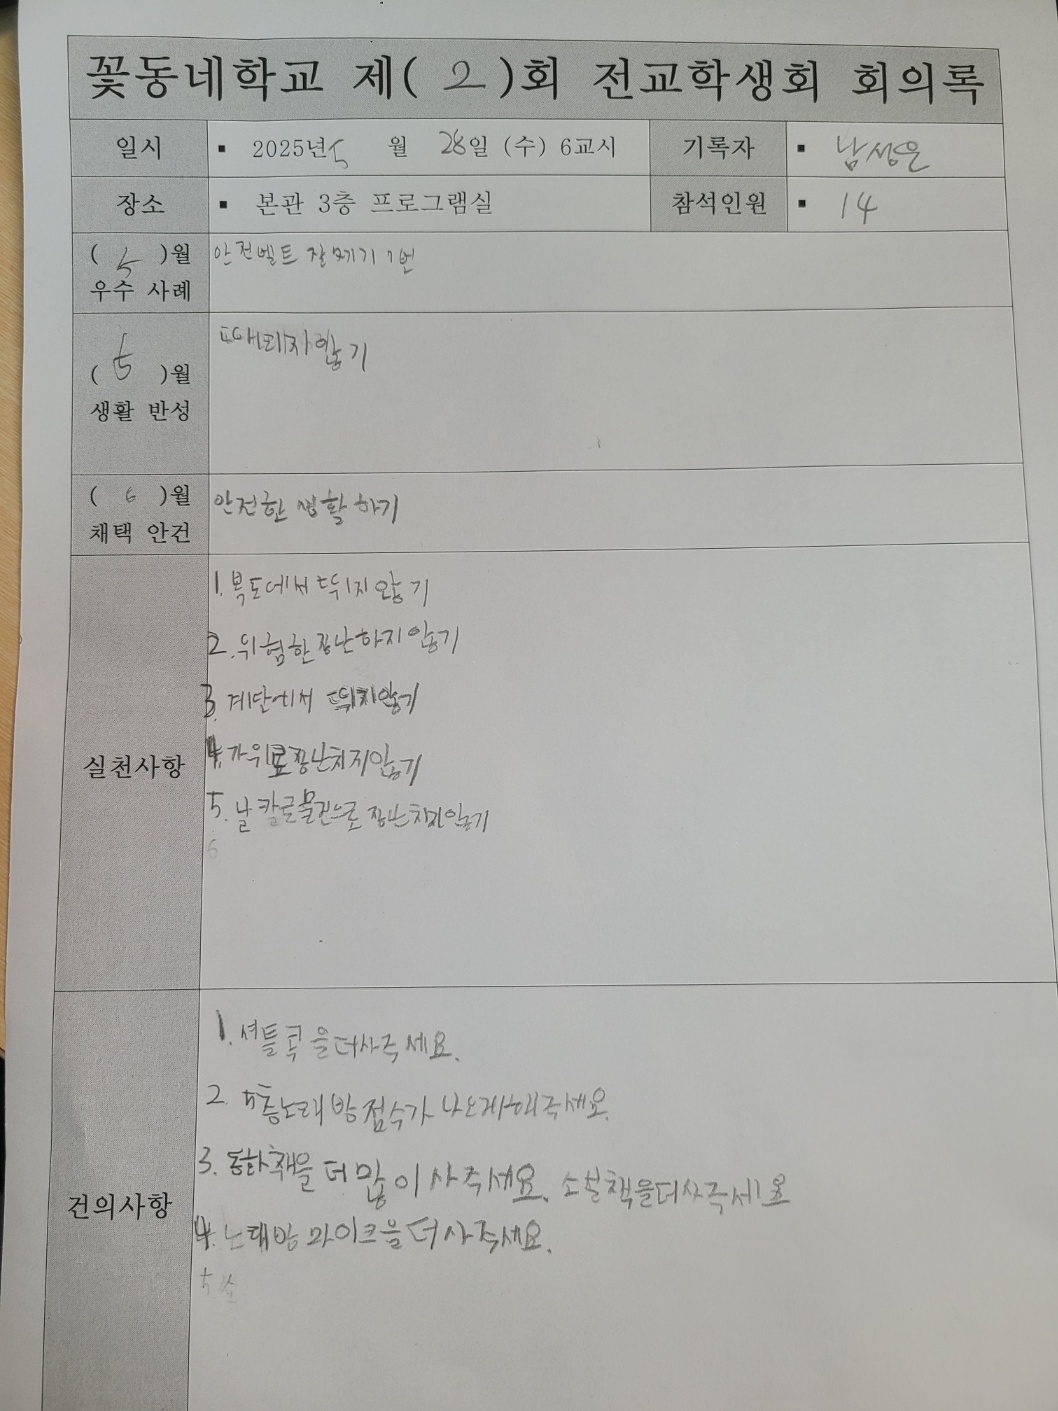 꽃동네학교 제( 2 )회 전교학생회 회의록
일시 ▪ 2025년 5 월 28일 (수) 6교시 기록자 ▪ 남성은
장소 ▪ 본관 3층 프로그램실 참석인원 ▪ 14
( 5 )월 우수 사례 안전벨트 잘메기 1번
( 5 )월
생활 반성
않기
( 6 )월 채택 안건 안전한 생활 하기
실천사항
1. 복도에서 뛰지 않기
2. 위험한 장난하지 않기
3. 계단에서 뛰지않기
4. 가위로 장난치지않기
5. 날카로운물건으로 장난치지않기
6
건의사항
1. 셔틀콕을 더사주세요.
2. 5층노래방 점수가 나오게해주세요.
3. 동화책을 더 많이 사주세요. 소설책을더사주세요
4. 노래방 마이크을 더 사주세요.
5